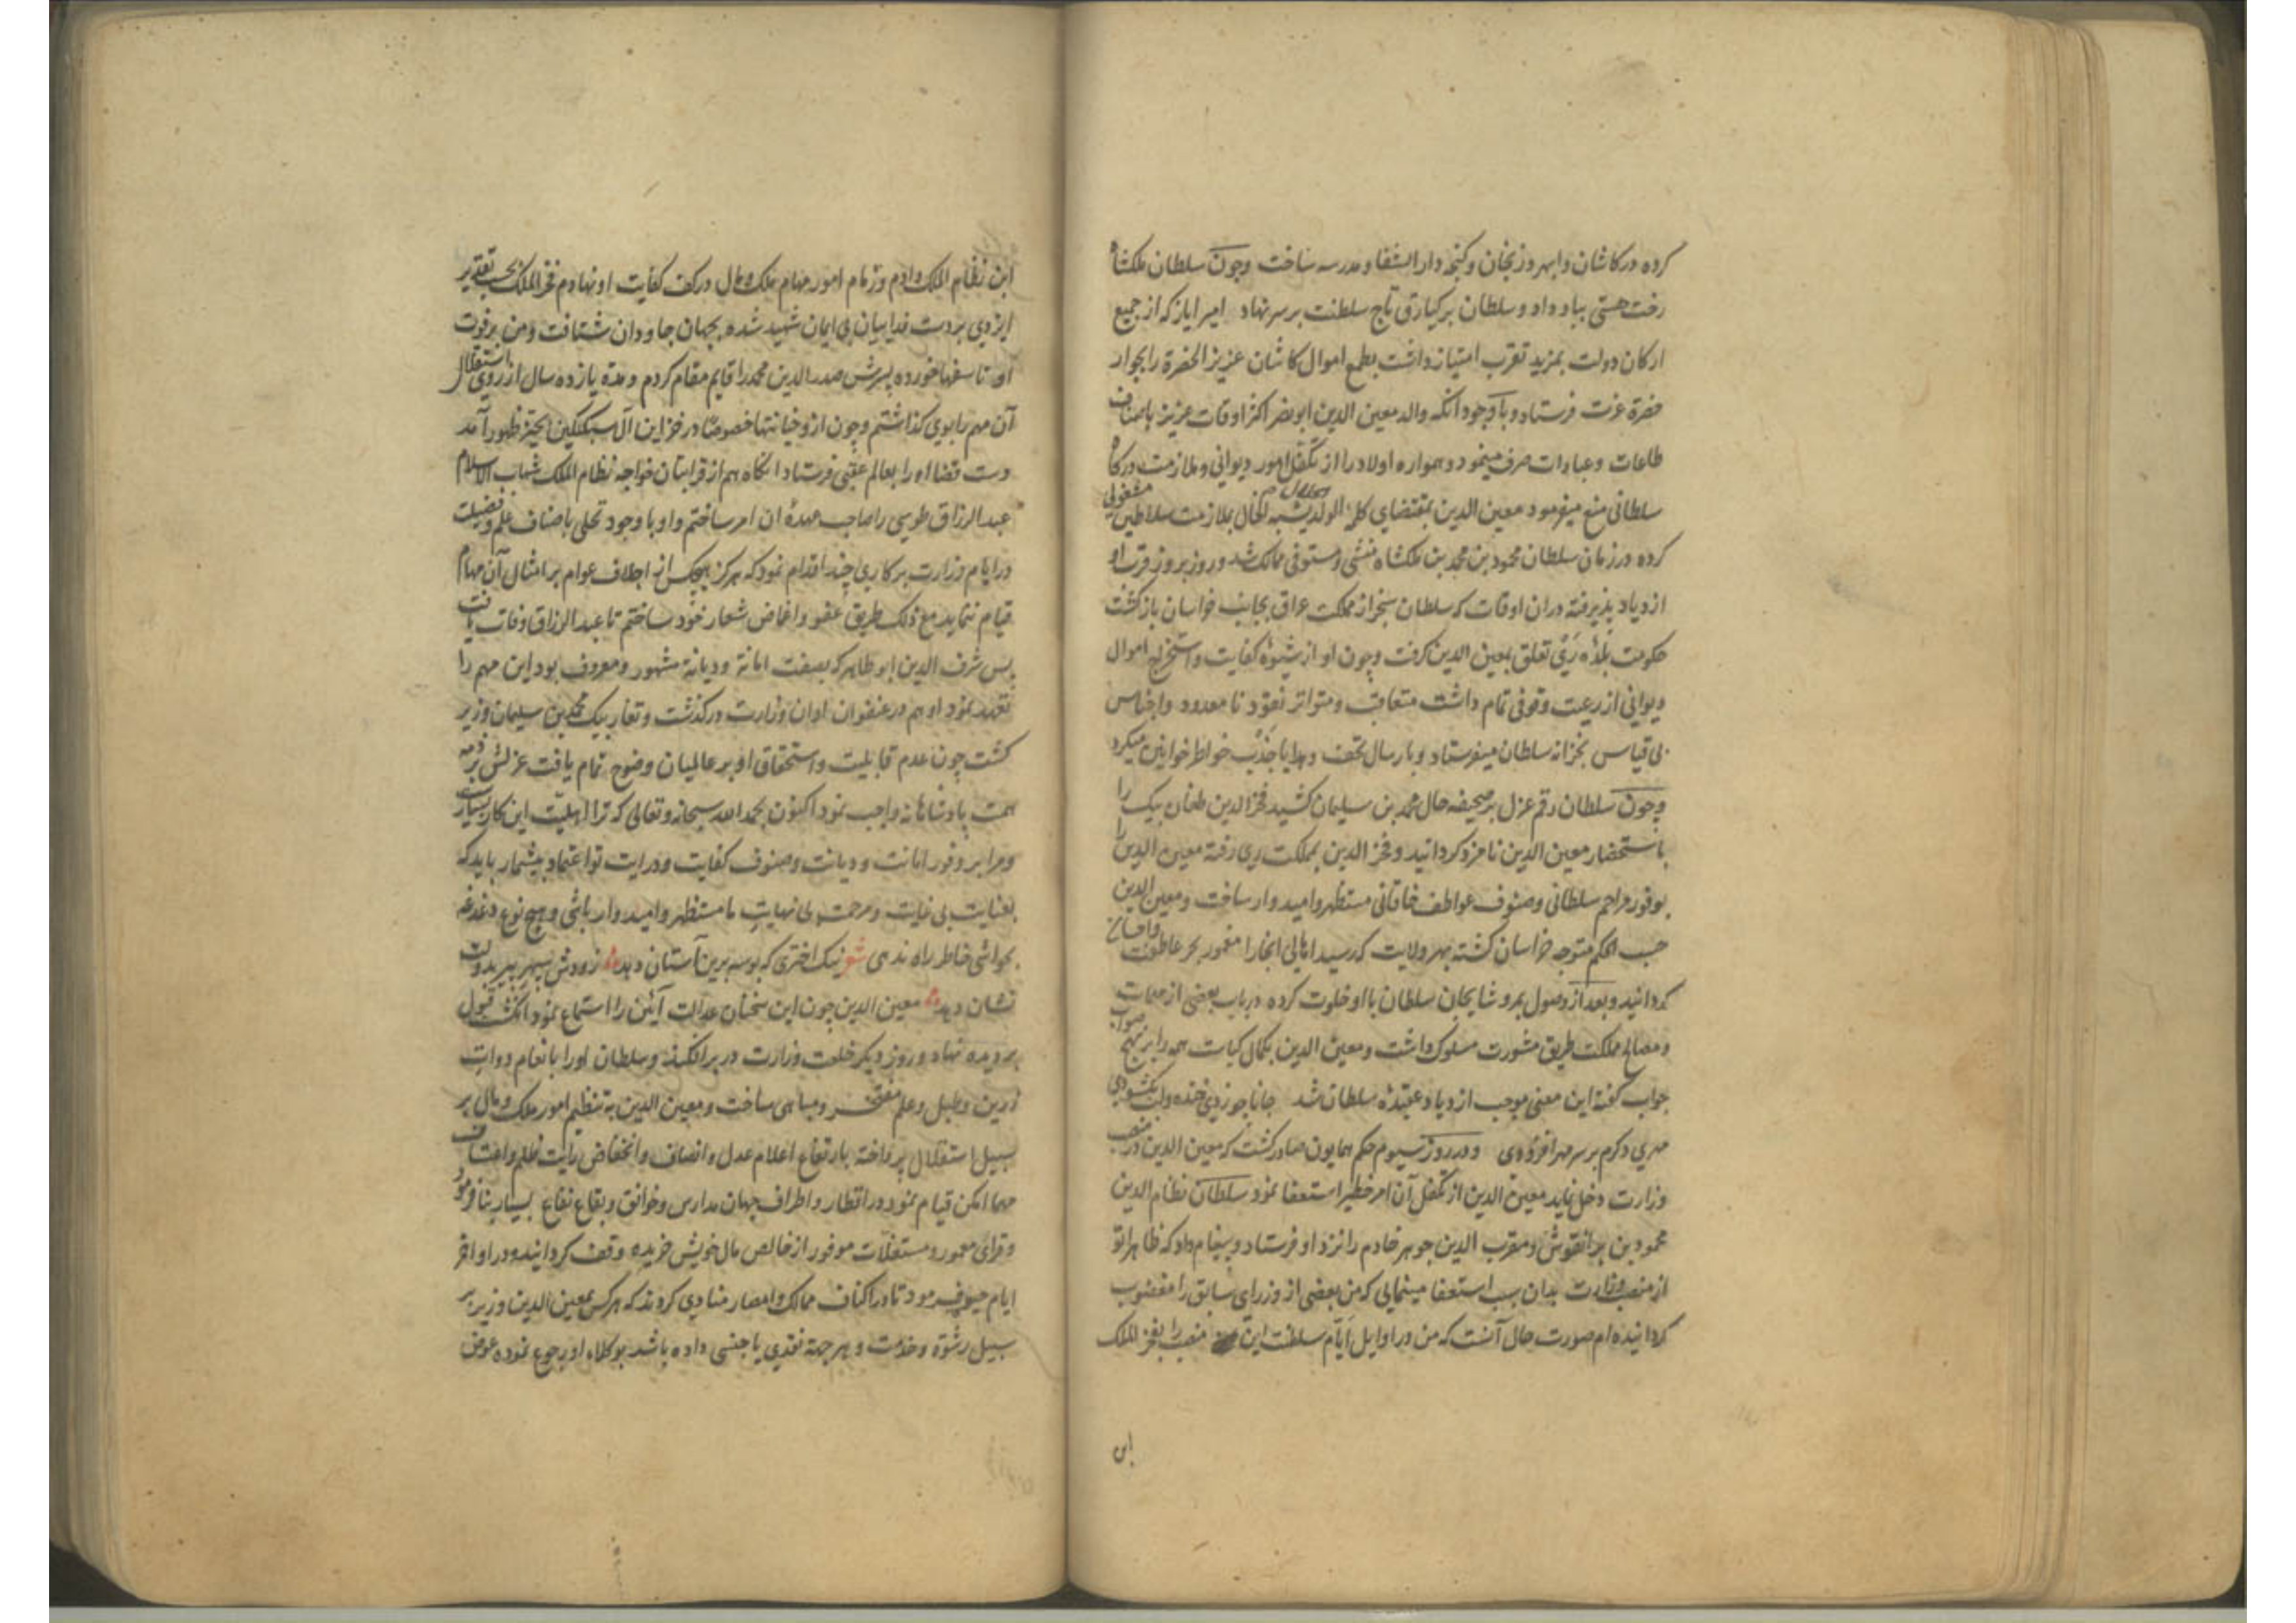 کرده در کاشان و ابهر و زنجان و کنجه دار الشفا و مدرسه ساخت و چون سلطان ملکشاه
رخت هستی بباد داد و سلطان برکیارق تاج سلطنت بر سر نهاد امیر ایاز که از جمیع
ارکان دولت بمزید تقرب امتیاز داشت بطمع اموال کاشان عزیز الحضرة را بجوار
حضرة عزت فرستاد و با وجود آنکه والد معین الدین ابو نصر اکثر اوقات عزیز باصناف
طاعات و عبادات صرف مینمود و همواره اولاد را از تکفل امور دیوانی و ملازمت درکاه
سلطانی منع میفرمود معین الدین بمقتضای کلمه الولد یشبه الخال بملازمت سلاطین مشغولی
کرده در زمان سلطان محمود بن محمد بن ملکشاه منشی و مستوفی ممالک شد و روز بروز قرب او
ازدیاد پذیرفته دران اوقات که سلطان سنجر از مملکت عراق بجانب خراسان بازکشت
حکومت بلده ری تعلق بمعین الدین کرفت و چون او از شیوه کفایت و استخراج اموال
دیوانی از رعیت وقوفی تمام داشت متعاقب و متواتر نقود نا معدود و اجناس
بی قیاس بخزانه سلطان میفرستاد و بارسال تحف و هدایا جذب خواطر خوانین میکرد
و چون سلطان رقم عزل بر صحیفه حال محمد بن سلیمان کشید فخر الدین طغان بیک را
باستحضار معین الدین نامزد کردانید و فخر الدین بمملکت ری رفته معین الدین را
بوفور مراحم سلطانی و صنوف عواطف خاقانی مستظهر و امیدوار ساخت و معین الدین
حسب الحکم متوجه خراسان کشته بهر ولایت که رسید اهالی انجا را مغمور بحر عاطفت و احسان
کردانید و بعد از وصول بمرو شایجان سلطان با او خلوت کرده در باب بعضی از مهمات
و مصالح مملکت طریق مشورت مسلوک داشت و معین الدین بکمال کیاست همه را بر نهج صواب
جواب کفته این معنی موجب ازدیاد عقیده سلطان شد جانا چو زدی خنده و لب بکشودی
مهری دکرم بر سر مهر افزودی و در روز سیوم حکم همایون صادر کشت که معین الدین در منصب
وزارت دخل نماید معین الدین از تکفل آن امر خطیر استعفا نمود سلطان نظام الدین
محمود بن برانقوش و مقرب الدین جوهر خادم را نزد او فرستاد و پیغام داد که ظاهرا تو
از منصب وزارت بدان سبب استعفا مینمایی که من بعضی از وزرای سابق را مغضوب
کردانیده ام صورت حال آنست که من در اوایل ایام سلطنت این منصب را بفخر الملک
ابن
ابن نظام الملک دادم و زمام امور مهام ملک و مال در کف کفایت او نهادم فخر الملک بحسب تقدیر
ایزدی بر دست فداییان بی ایمان شهید شده بجهان جاودان شتافت و من بر فوت
او تاسفها خورده پسرش صدر الدین محمد را قایم مقام کردم و مدة یازده سال از روی استقلال
آن مهم را بوی کذاشتم و چون ازو خیانتها خصوصا در خزاین آل سبکتکین بحیز ظهور آمد
دست قضا او را بعالم عقبی فرستاد انکاه هم از قرابتان خواجه نظام الملک شهاب الاسلام
عبد الرزاق طوسی را صاحب عهده ان امر ساختم و او با وجود تحلی باصناف علم و فضیلت
در ایام وزارت بر کاری چند اقدام نمود که هرکز هیچکس از اجلاف عوام بر امثال آن مهام
قیام ننماید مع ذلک طریق عفو و اغماض شعار خود ساختم تا عبد الرزاق وفات یافت
پس شرف الدین ابو طاهر که بصفت امانة و دیانة مشهور و معروف بود این مهم را
تعهد نمود او هم در عنفوان اوان وزارت درکذشت و تغار بیک محمد بن سلیمان وزیر
کشت چون عدم قابلیت و استحقاق او بر عالمیان وضوح تمام یافت عزلش بر ذمه
همت پادشاهانه واجب نمود اکنون بحمد الله سبحانه و تعالی که ترا اهلیت این کار بسیارست
و مرا بر وفور امانت و دیانت و صنوف کفایت و درایت تو اعتماد بیشمار باید که
بعنایت بی غایت و مرحمت بی نهایت ما مستظهر و امیدوار باشی و هیچ نوع دغدغه
بحواشی خاطر راه ندهی شعر نیک اختری که بوسه برین آستان دهد زودش سپهر پیر بدولت
نشان دهد معین الدین چون این سخنان عدالت آئین را استماع نمود انکشت قبول
بر دیده نهاد و روز دیکر خلعت وزارت در بر افکند و سلطان او را بانعام دوات
زرین و طبل و علم مفتخر و مباهی ساخت و معین الدین به تنظیم امور ملک و مال بر
سبیل استقلال پرداخته بارتفاع اعلام عدل و انصاف و انخفاض رایت ظلم و اعتساف
مهما امکن قیام نمود و در اقطار و اطراف جهان مدارس و خوانق و بقاع نفاع بسیار بنا فرمود
و قرای معمور و مستغلات موفور از خالص مال خویش خریده وقف کردانیده در اواخر
ایام حیوة فرمود تا در اکناف ممالک و امصار منادی کردند که هر کس بمعین الدین وزیر بر
سبیل رشوة و خدمت و بهر جهة نقدی یا جنسی داده باشد بوکلاء او رجوع نموده عوض